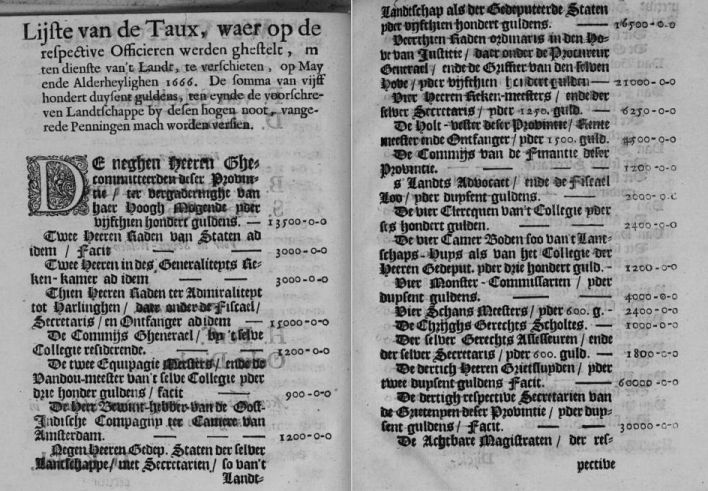 Lijste van de Taux, waer op de
respective Officieren werden ghestelt, m
ten dienste van't Landt, te verschieten, op May
ende Alderheylighen 1666. De somma van vijff
hondert duysent guldens, ten eynde de voorschre-
ven Landtschappe by desen hogen noot, vange-
rede Penningen mach worden versien.
DE neghen Heeren Ghe-
committeerden deser Provin-
tie / ter vergaderinghe van
haer Hoogh Mogende yder
vijfthien hondert guldens. — 13500-0-0
Twee Heeren Raden van Staten ad
idem / Facit — 3000-0-0
Twee Heeren in des Generaliteyts Re-
ken-kamer ad idem — 3000-0-0
Thien Heeren Raden ter Admiraliteyt
tot Harlinghen / daer onder de Fiscael /
Secretaris / en Ontfanger ad idem — 15000-0-0
De Commijs Ghenerael / by 't selve
Collegie residerende. — 1200-0-0
De twee Equipagie Meesters / ende de
Vandou-meester van't selve Collegie yder
drie honder guldens / facit — 900-0-0
De Heer Bewint-hebber van de Oost-
Indische Compagny ter Camere van
Amsterdam. — 1200-0-0
Negen Heeren Gedep. Staten der selver
Landtschappe / met Secretarien / so van't
Landt-
Landtschap als der Gedeputeerde Staten
yder vijfthien hondert guldens. — 16500-0-0
Veerthien Raden ordinaris in den Ho-
ve van Justitie / daer onder de Procureur
Generael / ende de Griffier van den selven
Hove / yder vijfthien hondert gulden — 21000-0-0
Vier Heeren Reken-meesters / ende der
selver Secretaris / yder 1250. guld. — 6250-0-0
De Holt-vester deser Provintie / Rente
meester ende Ontfanger / yder 1500. guld. 4500-0-0
De Commijs van de Finantie deser
Provintie. — 1200-0-0
s' Landts Advocaet / ende de Fiscael
Loo / yder duysent guldens. — 2000-0-0
De vier Clercquen van't Collegie yder
ses hondert gulden. — 2400-0-0
De vier Camer Boden soo van't Lant-
schaps-Huys als van het Collegie der
Heeren Gedeput. yder drie hondert guld. - 1200-0-0
Vier Monster-Commissarien / yder
duysent guldens. — 4000-0-0
Vier Schans Meesters / yder 600. g. - 2400-0-0
De Chrijghs Gerechts Scholtes. — 1000-0-0
Der selver Gerechts Assesseuren / ende
der selver Secretaris / yder 600. guld. — 1800-0-0
De dertich Heeren Grietsluyden / yder
twee duysent guldens Facit. — 60000-0-0
De dertigh respective Secretarien van
de Grietenyen deser Provintie / yder duy-
sent guldens / Facit. — 30000-0-0
De Achtbare Magistraten / der res-
pective